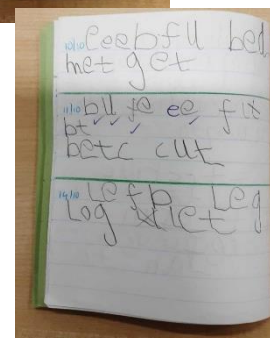 10/10 Ceebfu bed
met get
11/10 bu fe ee fit
bt
betc cut
14/10 Le fb Leg
Log